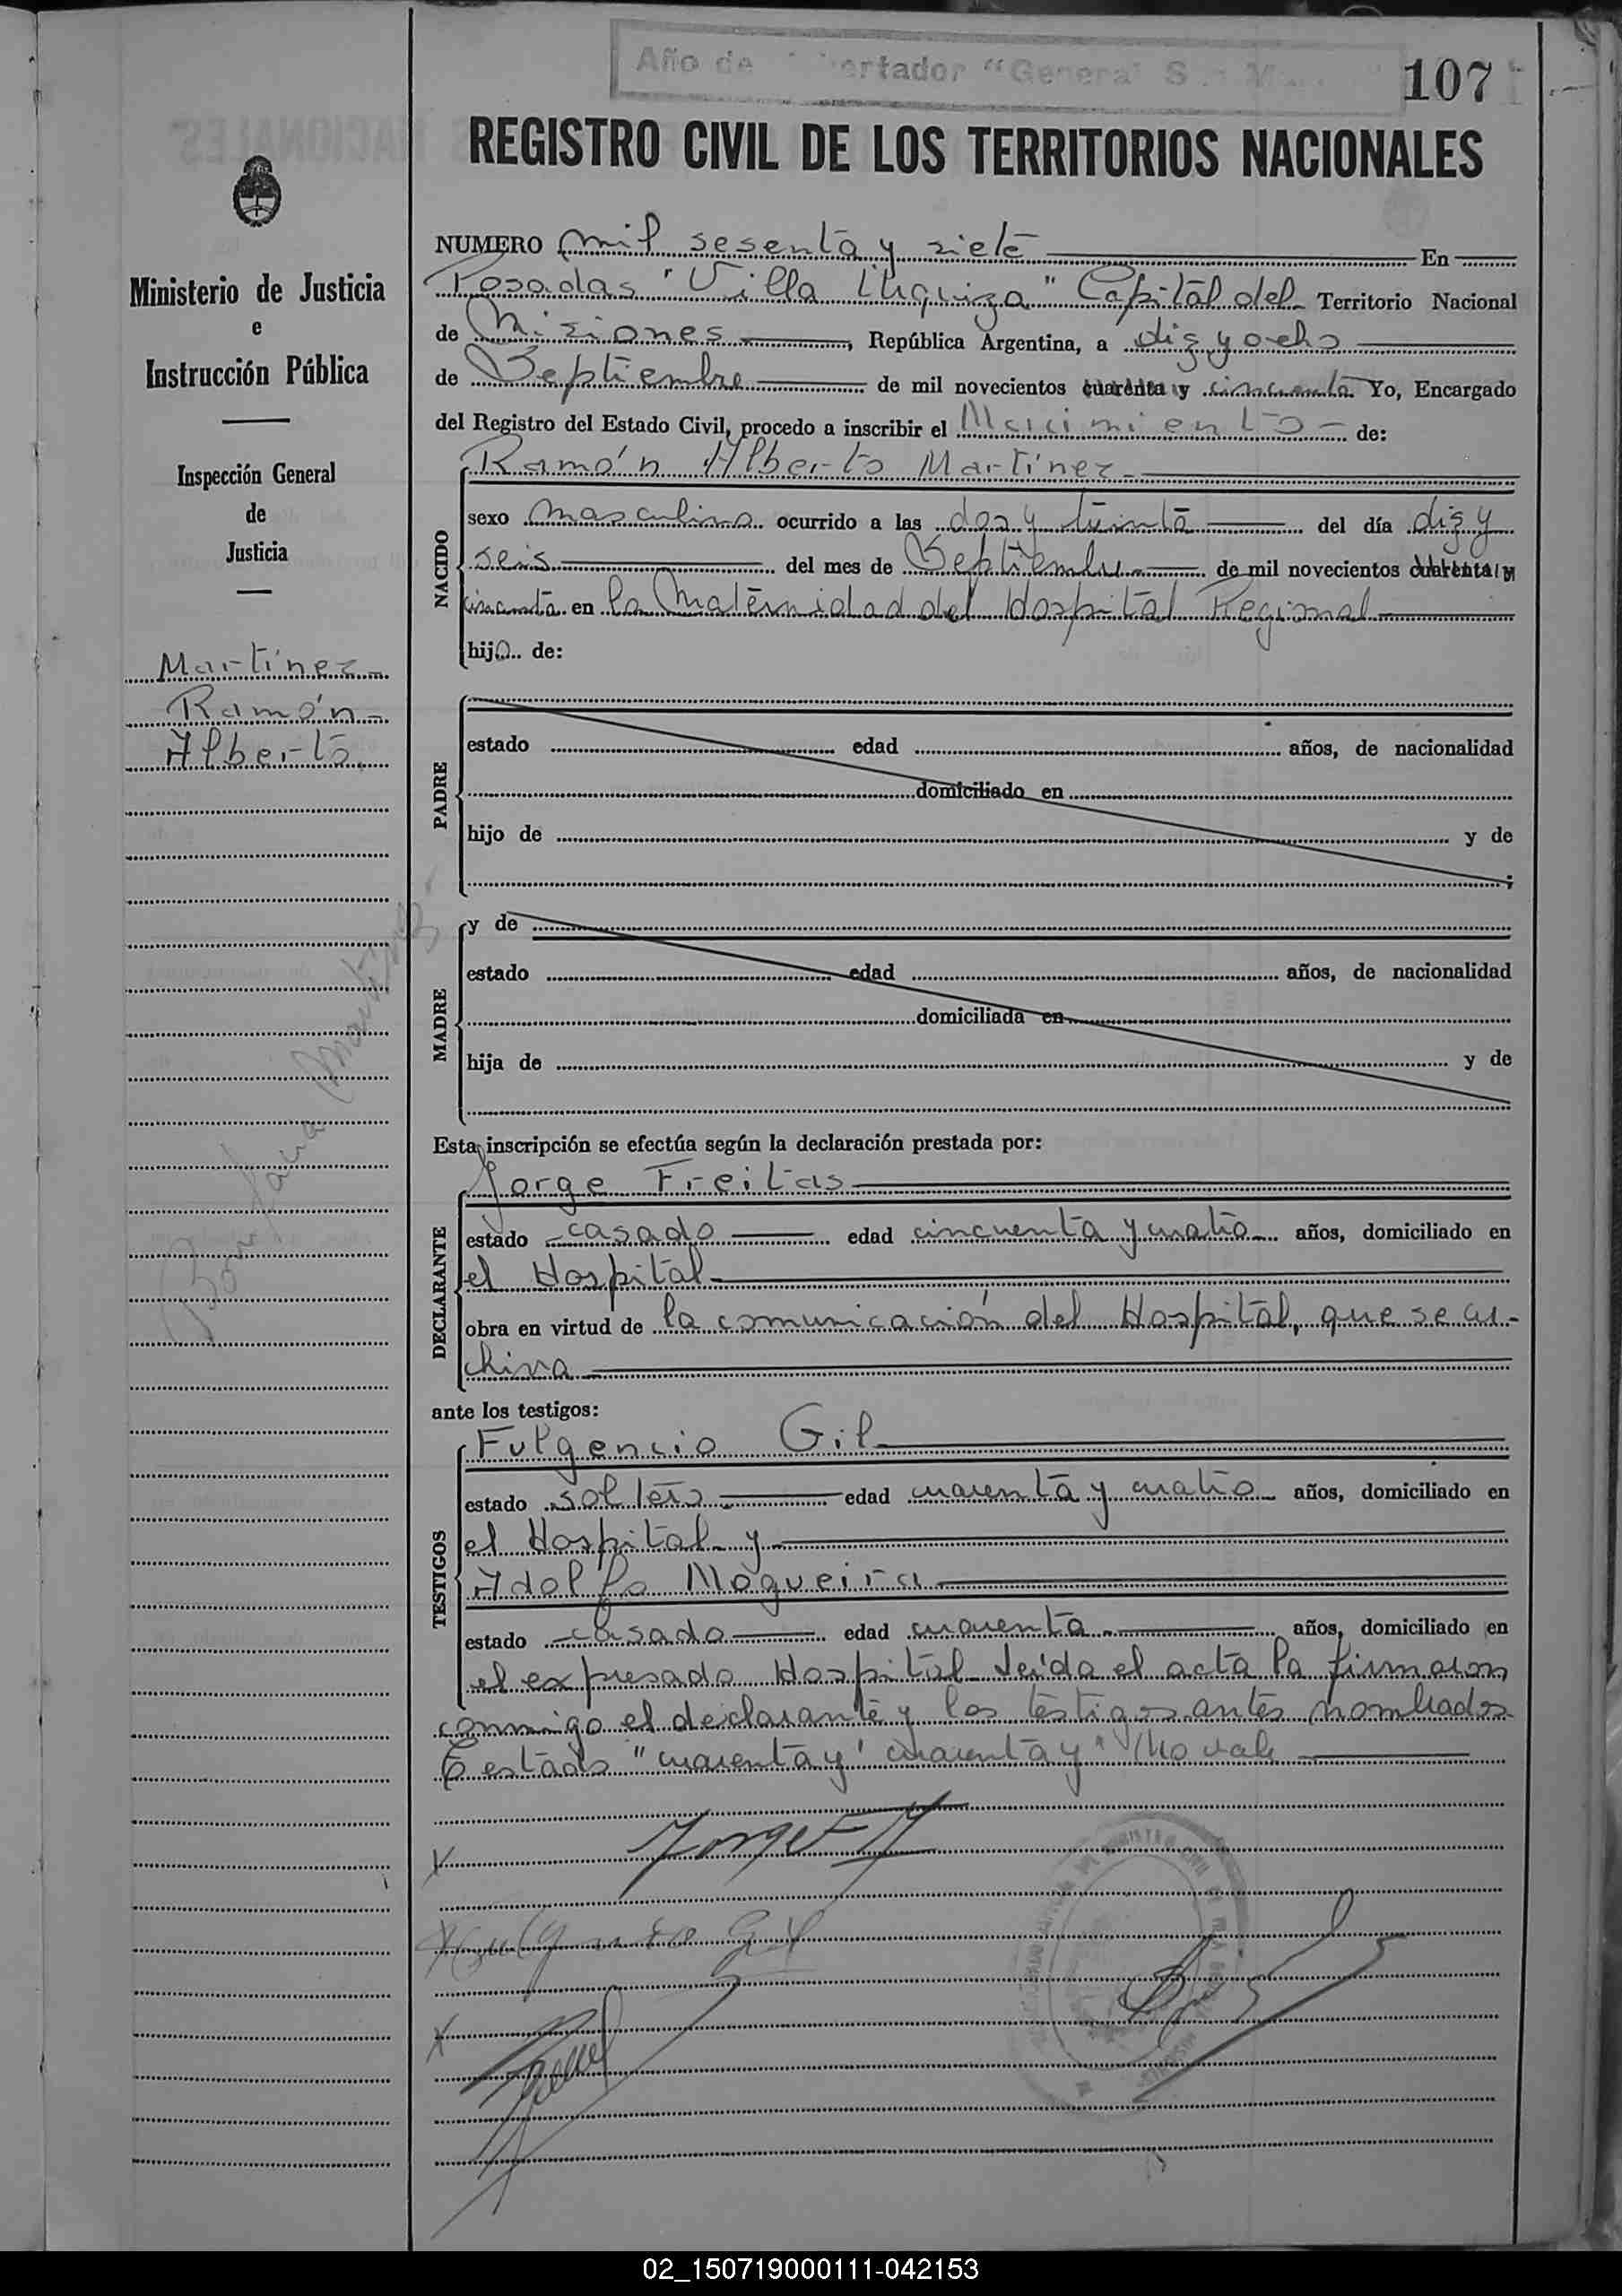 Año de ertador "General S
107
REGISTRO CIVIL DE LOS TERRITORIOS NACIONALES
Ministerio de Justicia
e
Instrucción Pública
Inspección General
de
Justicia
Martínez
Ramón
Alberto
NUMERO mil sesenta y siete En
Posadas "Villa Urquiza" Capital del Territorio Nacional
de Misiones, República Argentina, a diez y ocho
de Septiembre de mil novecientos cuarenta y cincuenta Yo, Encargado
del Registro del Estado Civil, procedo a inscribir el Nacimiento de:
NACIDO
Ramón Alberto Martínez
sexo masculino ocurrido a las dos y treinta del día diez y
seis del mes de Septiembre de mil novecientos cuarenta y
cincuenta en la Maternidad del Hospital Regional
hijo de:
PADRE
estado edad años, de nacionalidad
domiciliado en
hijo de y de
;
MADRE
y de
estado edad años, de nacionalidad
domiciliada en
hija de y de
Esta inscripción se efectúa según la declaración prestada por:
DECLARANTE
Jorge Freitas
estado casado edad cincuenta y cuatro años, domiciliado en
el Hospital
obra en virtud de la comunicación del Hospital, que se ar-
chiva
ante los testigos:
TESTIGOS
Fulgencio Gil
estado soltero edad cuarenta y cuatro años, domiciliado en
el Hospital y
Adolfo Nogueira
estado casado edad cuarenta años, domiciliado en
el expresado Hospital leída el acta la firmaron
conmigo el declarante y los testigos antes nombrados
Testado "cuarenta y" cuarenta y" No vale
Jorge F
Fulgencio Gil
02_150719000111-042153